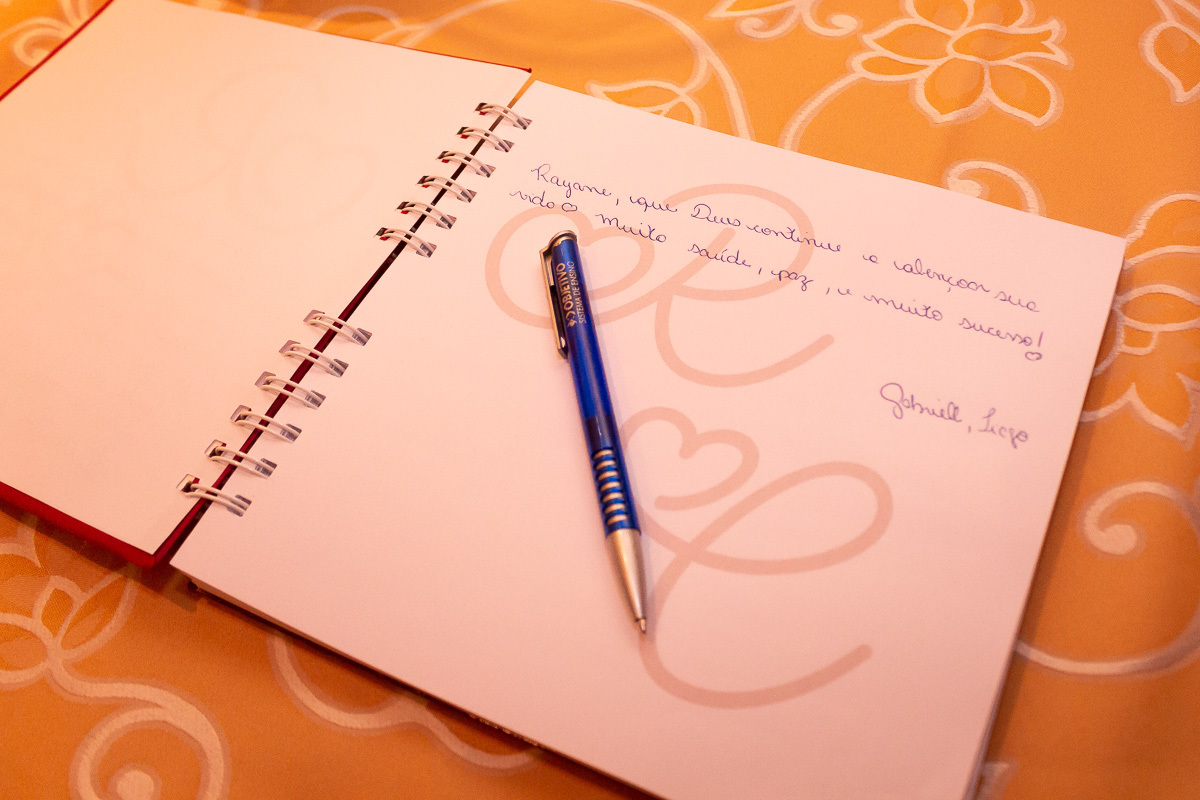 Rayane, que Deus continue a abençoar sua
vida♡ muito saúde, paz, e muito sucesso!
♡
Gabriell, Tiago
OBJETIVO
SISTEMA DE ENSINO